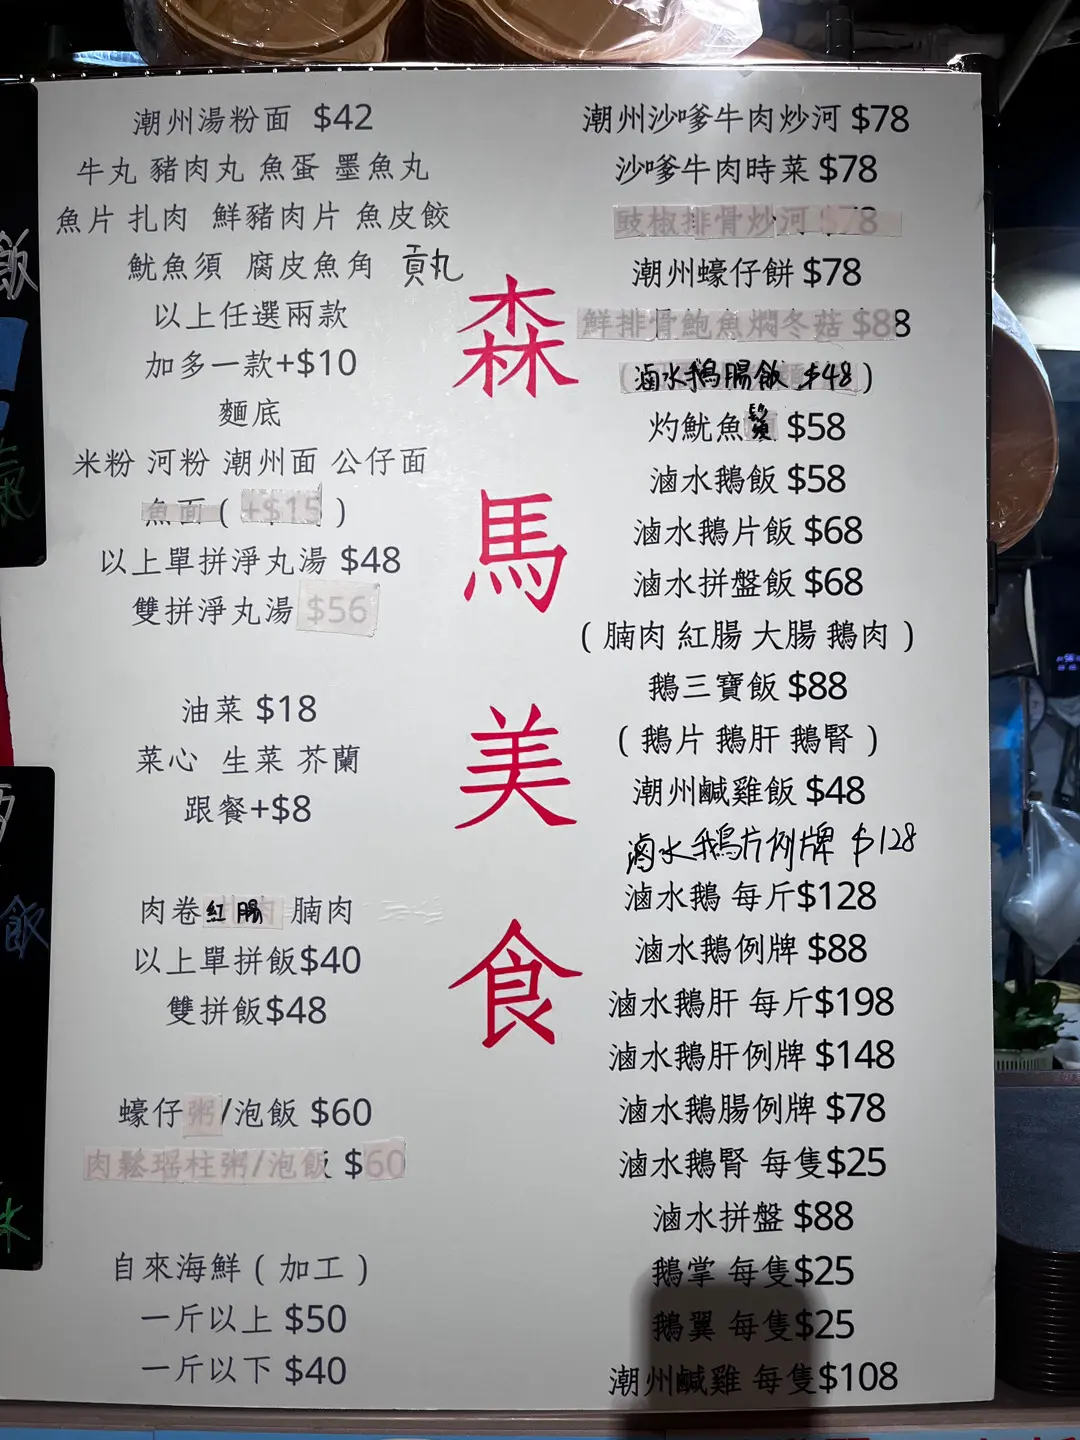 潮州湯粉面 $42
牛丸 豬肉丸 魚蛋 墨魚丸
魚片 扎肉 鮮豬肉片 魚皮餃
魷魚須 腐皮魚角 貢丸
以上任選兩款
加多一款+$10
麵底
米粉 河粉 潮州面 公仔面
魚面 ( +$15 )
以上單拼淨丸湯 $48
雙拼淨丸湯 $56
油菜 $18
菜心 生菜 芥蘭
跟餐+$8
肉卷 紅腸 腩肉
以上單拼飯$40
雙拼飯$48
蠔仔粥/泡飯 $60
肉鬆瑶柱粥/泡飯 $60
自來海鮮 ( 加工 )
一斤以上 $50
一斤以下 $40
森馬美食
潮州沙嗲牛肉炒河 $78
沙嗲牛肉時菜 $78
豉椒排骨炒河 $78
潮州蠔仔餅 $78
鮮排骨鮑魚燜冬菇 $88
( 滷水鵝腸飯 $48 )
灼魷魚鬚 $58
滷水鵝飯 $58
滷水鵝片飯 $68
滷水拼盤飯 $68
( 腩肉 紅腸 大腸 鵝肉 )
鵝三寶飯 $88
( 鵝片 鵝肝 鵝腎 )
潮州鹹雞飯 $48
滷水鵝片例牌 $128
滷水鵝 每斤$128
滷水鵝例牌 $88
滷水鵝肝 每斤$198
滷水鵝肝例牌 $148
滷水鵝腸例牌 $78
滷水鵝腎 每隻$25
滷水拼盤 $88
鵝掌 每隻$25
鵝翼 每隻$25
潮州鹹雞 每隻$108
飯
飯